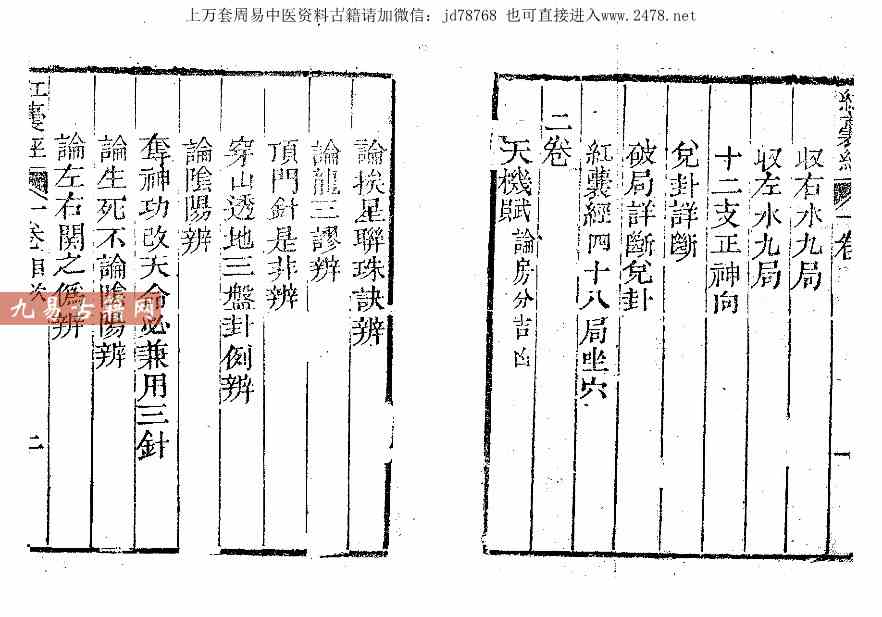 上万套周易中医资料古籍请加微信：jd78768 也可直接进入www.2478.net
紅囊經 一卷 一
収右水九局
収左水九局
十二支正神向
兌卦詳斷
破局詳斷兌卦
紅囊經四十八局坐穴
二卷
天機賦論房分吉凶
論挨星聯珠訣辨
論龍三謬辨
頂門針是非辨
穿山透地三盤卦例辨
論陰陽辨
奪神功改天命必兼用三針
論生死不論陰陽辨
論左右關之僞辨
紅囊經 一卷目次 二
九易古籍网